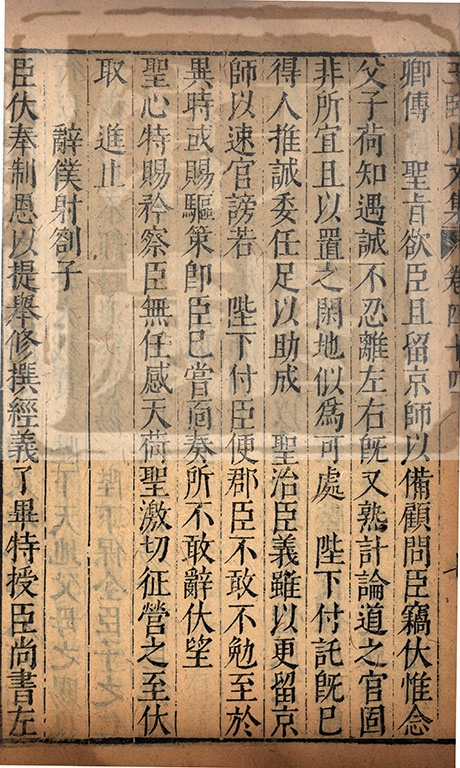 王臨川文集 卷四十四
卿傳 聖旨欲臣且留京師以備顧問臣竊伏惟念
父子荷知遇誠不忍離左右旣又熟計論道之官固
非所宜且以置之閑地似爲可處 陛下付託旣已
得人推誠委任足以助成 聖治臣義雖以更留京
師以速官謗若 陛下付臣便郡臣不敢不勉至於
異時或賜驅策卽臣已嘗面奏所不敢辭伏望
聖心特賜矜察臣無任感天荷聖激切征營之至伏
取 進止
辭僕射劄子
臣伏奉制恩以提舉修撰經義了畢特授臣尚書左